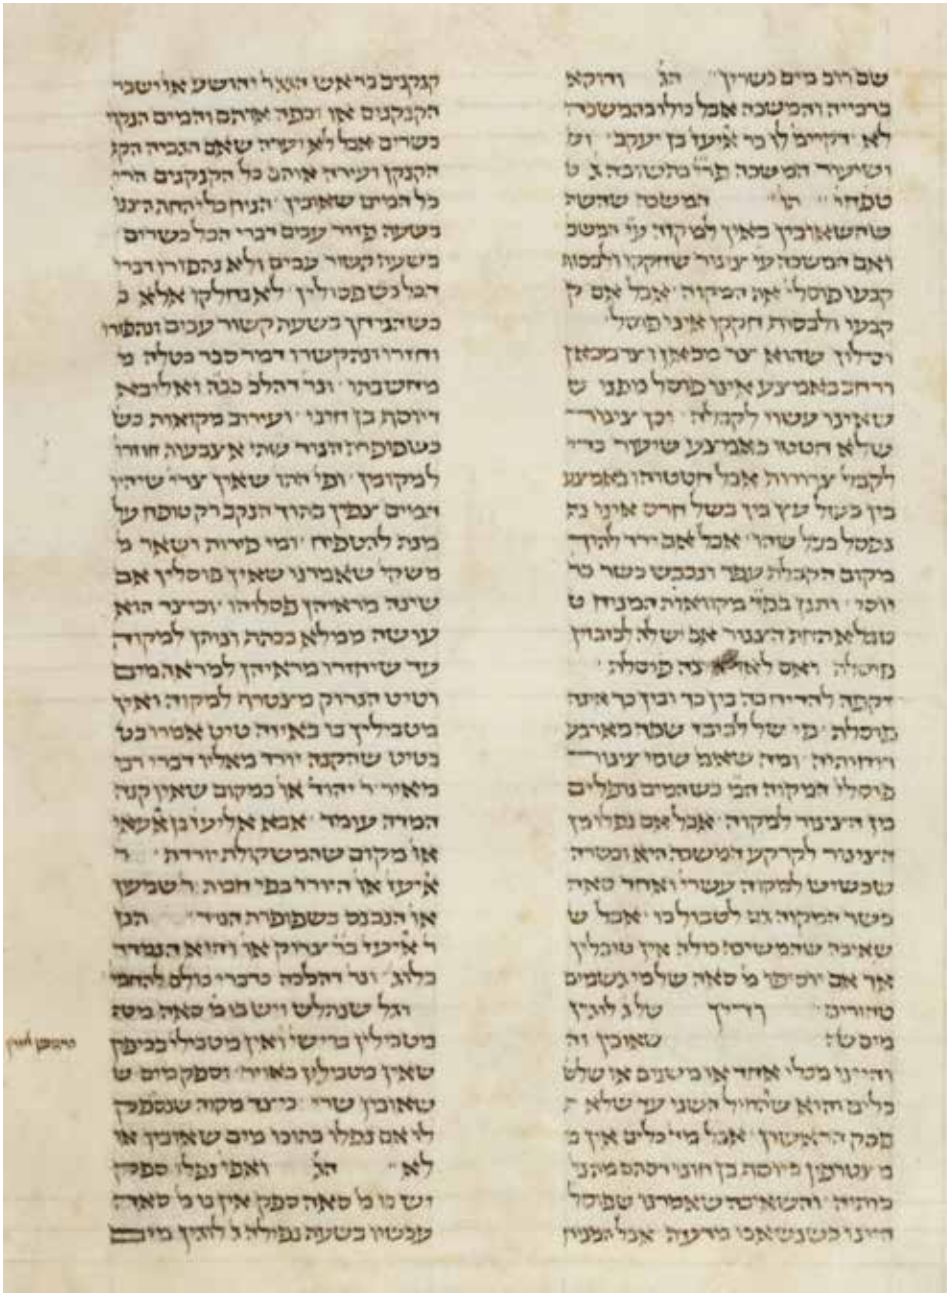 שם רוב מים כשרין הג ודוקא
ברבייה והמשכה אבל כולו בהמשכה
לא דקיימ לן כר אליעז בן יעקב וש
ושיעור המשכה תרי בתשובה ג ט
טפחי הו המשכה שהשה
שהשאובין באין למקוה עי המשכ
ואם המשכה עי צינור שחקקו ולבסוף
קבעו פוסלי את המקוה אבל אם ק
קבעו ולבסוף חקקו אינו פוסל
וסילון שהוא צר מכאן וצר מכאן
ורחב באמצע אינו פוסל מפני ש
שאינו עשוי לקבלה וכן צינור
שלא חטטו באמצע שיעור כדי
לקבל צרורות אבל חטטוהו באמצע
בין בשל עץ בין בשל חרס אינו נה
נפסל בכל שהו אבל אם ירד לתוך
מקום הקבלת עפר ונכבש כשר כר
יוסי ותנן בפר מקואות המניח ט
טבלא תחת הצנור אם יש לה לבזבז
פוסלת ואם לאו אינה פוסלת
זקפה להדיחה בין כך ובין כך אינה
פוסלת מי של לבזבז שפה מארבע
רוחותיה ומה שאמ שמי צינור
פוסלי המקוה המ כשהמים נופלים
מן הצינור למקוה אבל אם נפלו מן
הצינור לקרקע המשכה היא וכשרה
שכשיש למקוה עשרי ואחד סאה
כשר המקוה גם לטבול בו אבל ש
שאיבה שהמשיכוה כולה אין טובלין
אך אם יוסיפו מ סאה של מי גשמים
טהורים רדיך של ג לוגין
מים ש שאובין וה
והיינו מכלי אחד או משנים או שלש
כלים והוא שיתחיל השני עד שלא
פסק הראשון אבל מד כלים אין מ
מצטרפין כיוסף בן חוני דסתם מתני
כותיה והשאיבה שאמרנו שפוסל
היינו כשנשאבו מדעת אבל המניח
קנקנים בראש הגג ר יהושע או ישבר
הקנקנים או יכפה אותם והמים הנקוי
כשרים אבל לא יערה שאם הגביה הקנ
הקנקן ועירה אותם כל הקנקנים הרי
כל המים שאובין הניח כלי תחת הצנו
בשעה פזור עבים דברי הכל כשרים
בשעת קשור עבים ולא נתפזרו דברי
הכל נמ שפסולין לא נחלקו אלא כ
כשהניחן בשעת קשור עבים ונתפזרו
וחזרו ונתקשרו דמר סבר בטלה מ
מחשבתו וגר דהלכ ככה ואליבא
דיוסף בן חוני ועירוב מקואות כש
כשפופרת הנוד שתי אצבעות חוזרו
למקומן ופי ההו שאין צרי שיהיו
המים צפין בתוך הנקב רק טופח על
מנת להטפיח ומי פירות ושאר מ
משקי שאמרנו שאין פוסלין אם
שינה מראיהן פסלוהו וכיצד הוא
עושה ממלא בכתף ונותן למקוה
עד שיחזרו מראיהן למראה מים
וטיט הנרוק מצטרף למקוה ואין
מטבילין בו באיזה טיט אמרו בט
בטיט שהקנה יורד מאליו דברי רבי
מאיר ר יהוד או במקום שאין קנה
המדה עומד אבא אליעז בן
או מקום שהמשקולת יורדת ר
אליעז או היורד בפי חבית ר שמעון
או הנכנס כשפופרת הנוד הנז
ר אליעז בר צדוק או והוא הנמדד
בלוג וגר דהלכה כדברי כולם להחמי
וגל שנתלש ויש בו מ סאה מטה
מטבילין ברישי ואין מטבילי בכיפין
שאין מטבילין באויר וספק מים ש
שאובין שרי כיצד מקוה שנסתפק
לו אם נפלו בתוכו מים שאובין או
לא הג ואפי נפלו ספק
יש בו מ סאה ספק אין בו מ סאה
עכשיו בשעת נפילת ג לוגין מים